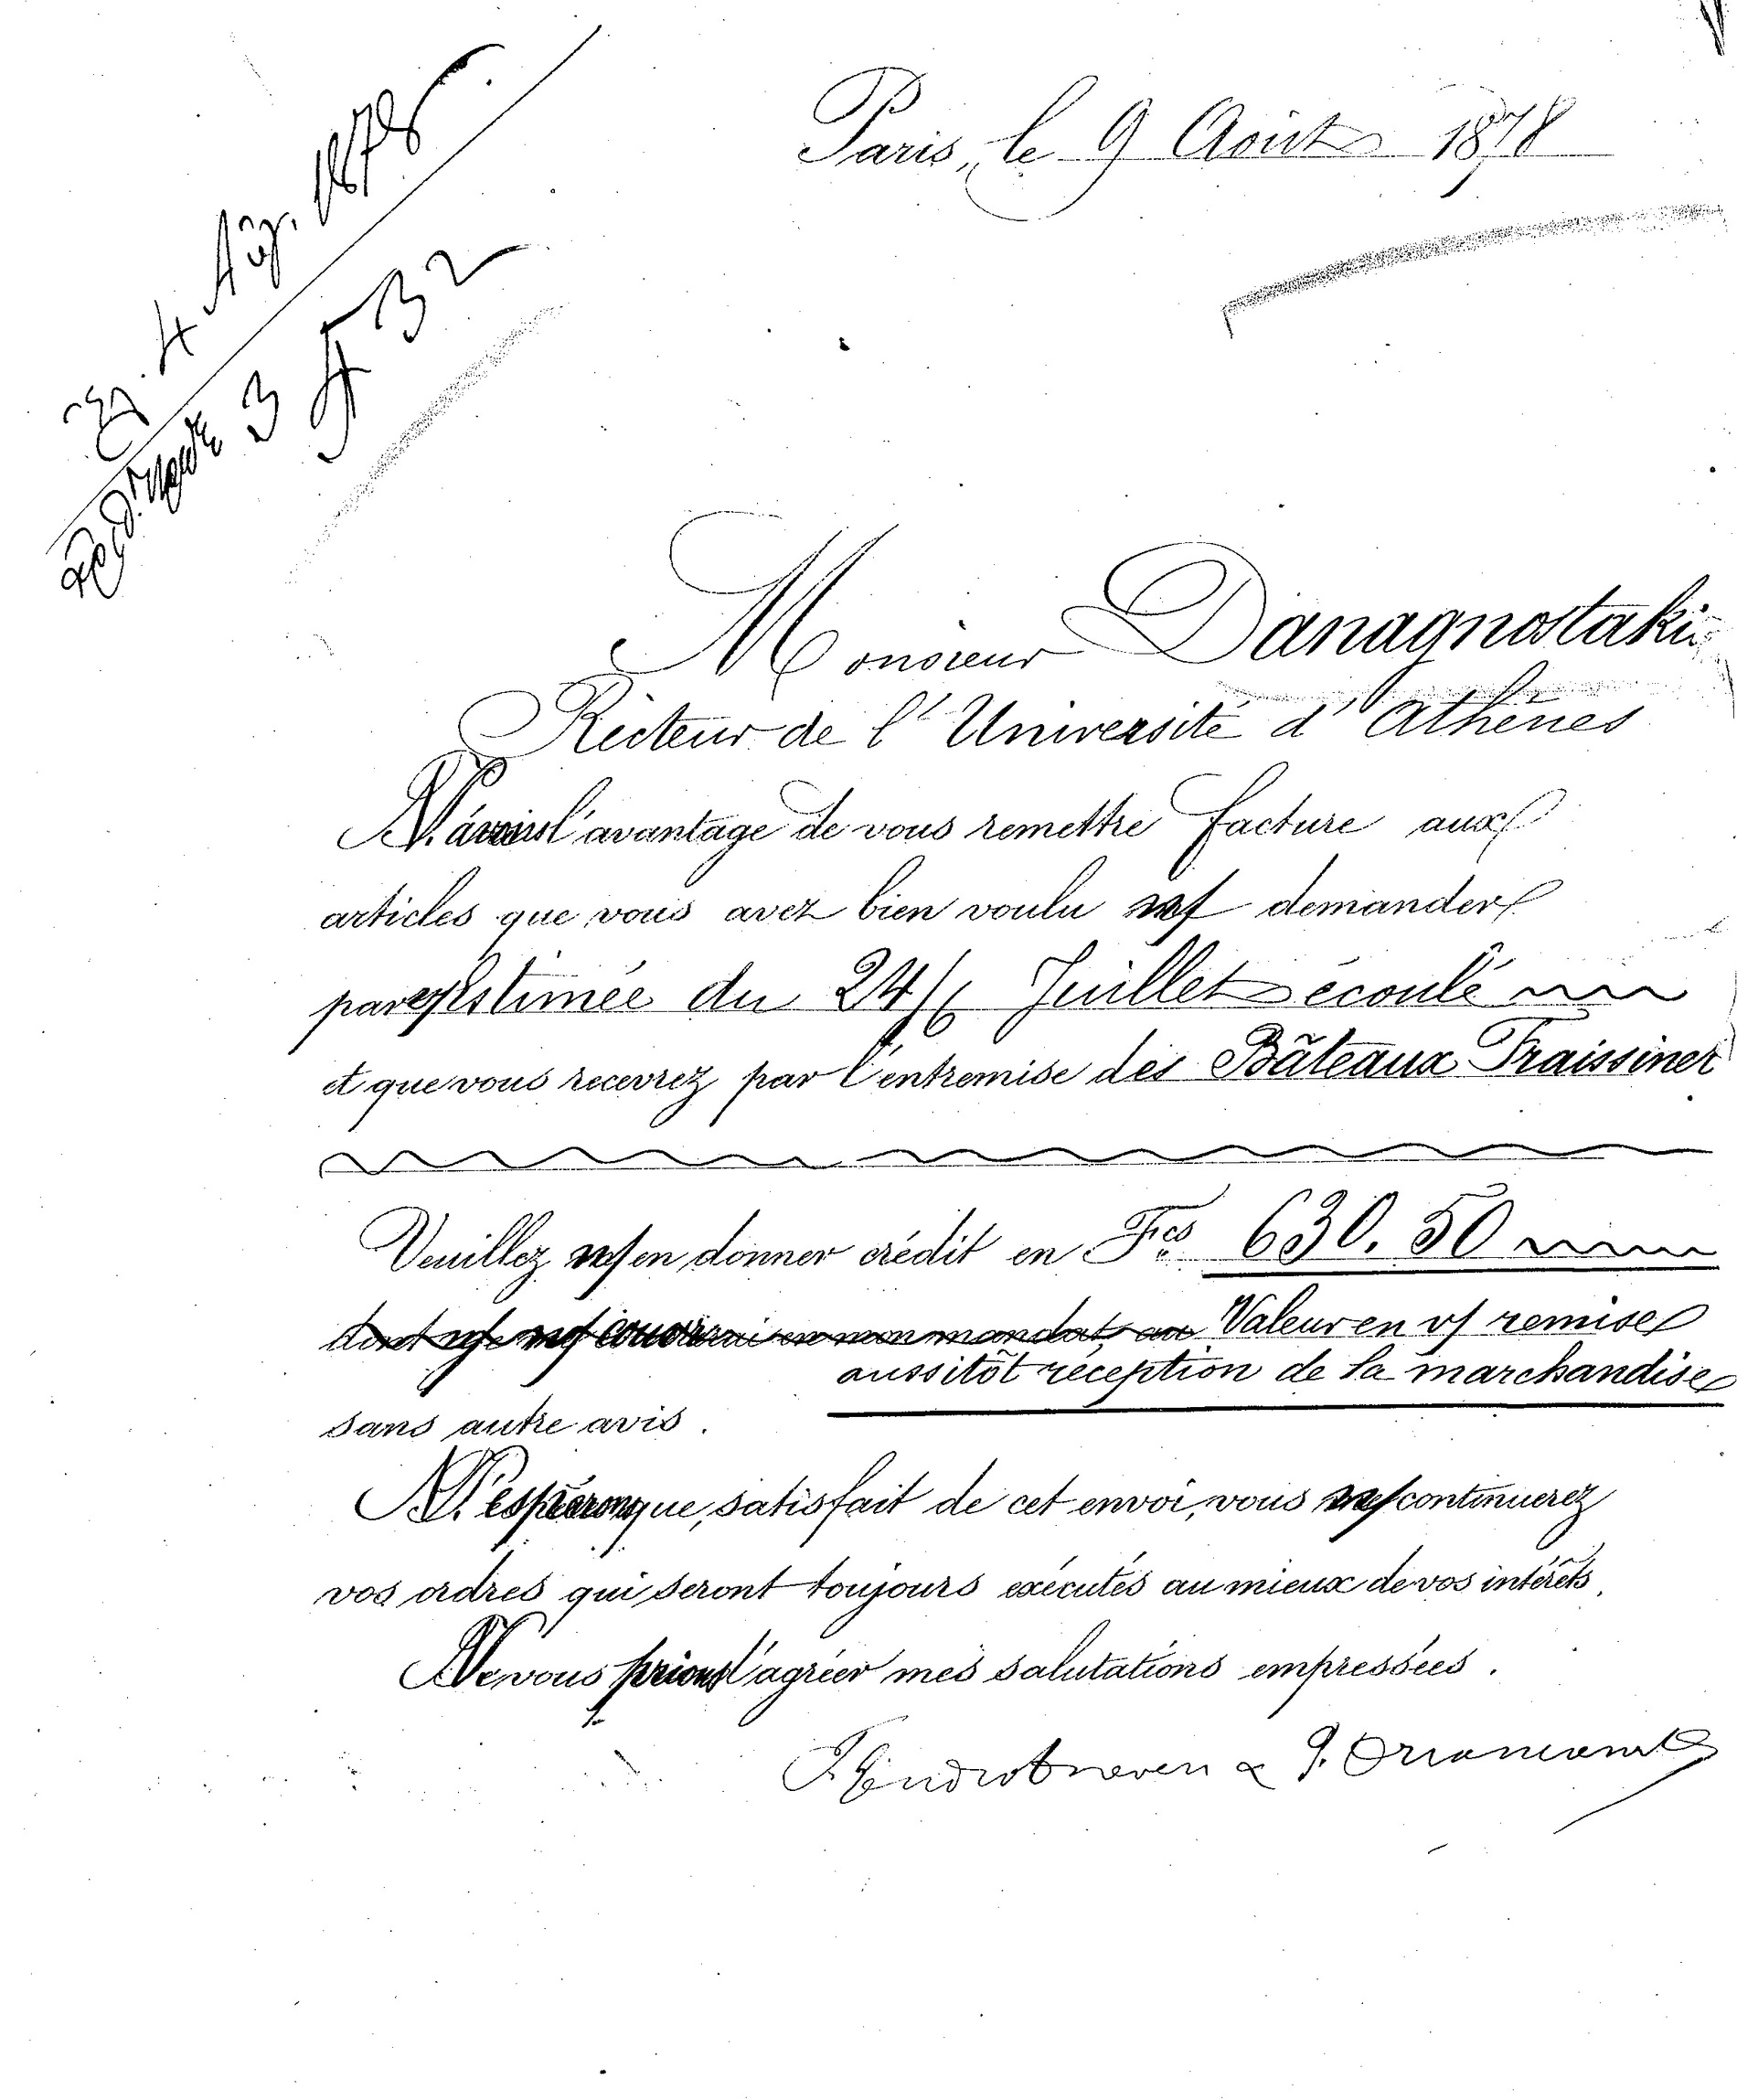 Paris, le 9 Août 1878
Monsieur Danagnostaki
Recteur de l'Université d'Athènes
N. avons l'avantage de vous remettre facture aux
articles que vous avez bien voulu demander
par estimée du 24/6 Juillet écoulé
et que vous recevrez par l'entremise des Bâteaux Fraissinet
Veuillez en donner crédit en Fcs 630.50
Valeur en v/ remise
aussitôt réception de la marchandise
sans autre avis.
N. espérons que, satisfait de cet envoi, vous continuerez
vos ordres qui seront toujours exécutés au mieux de vos intérêts.
Ne vous prions d'agréer mes salutations empressées.